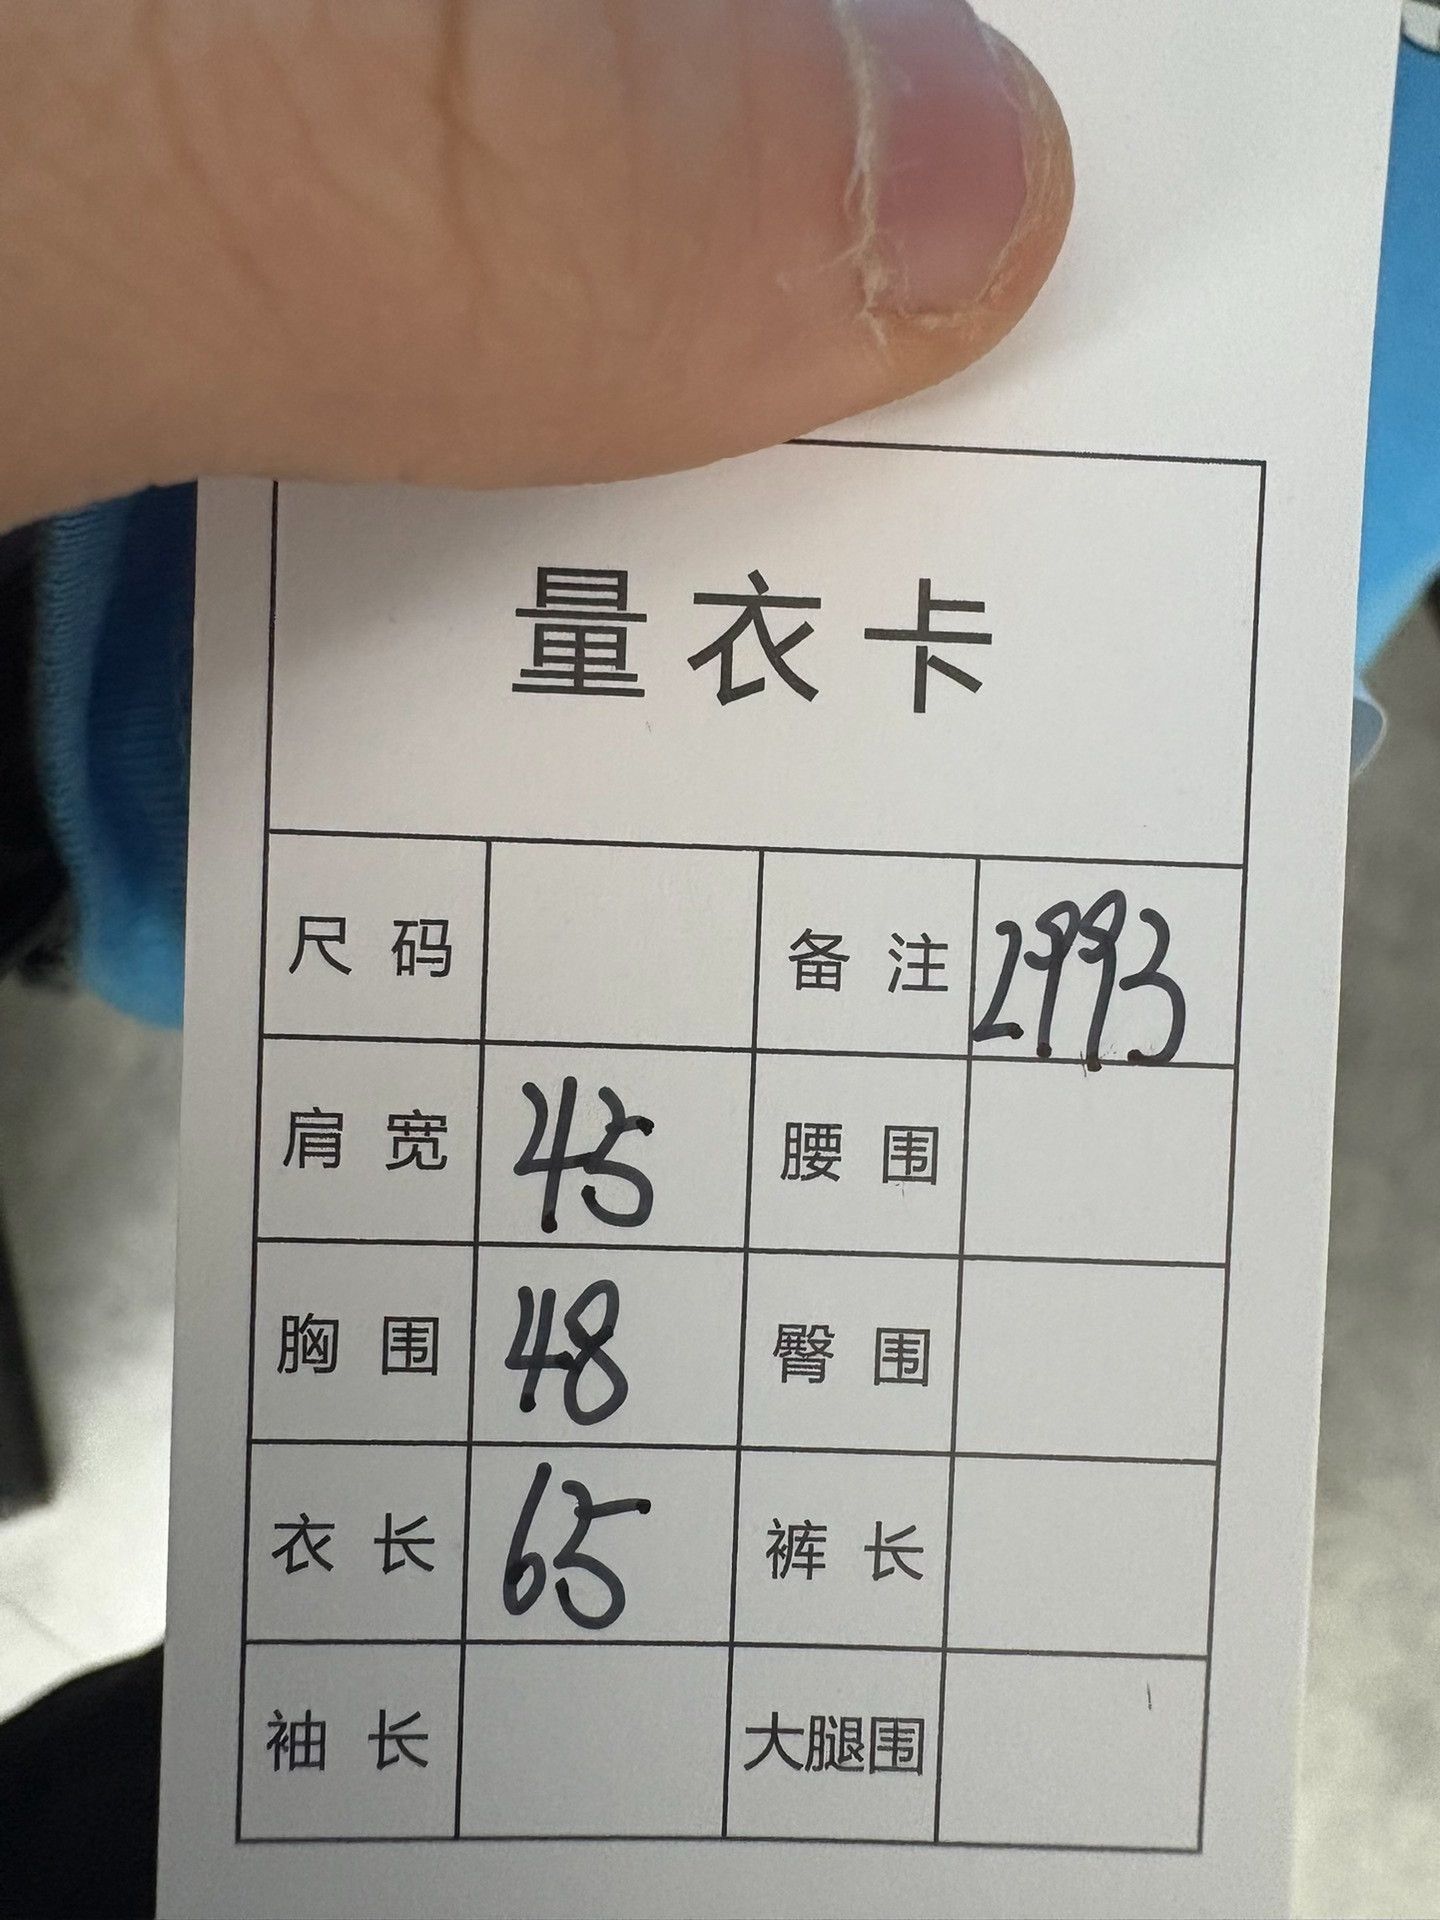 量衣卡
尺码 备注 2993
肩宽 45 腰围
胸围 48 臀围
衣长 65 裤长
袖长 大腿围